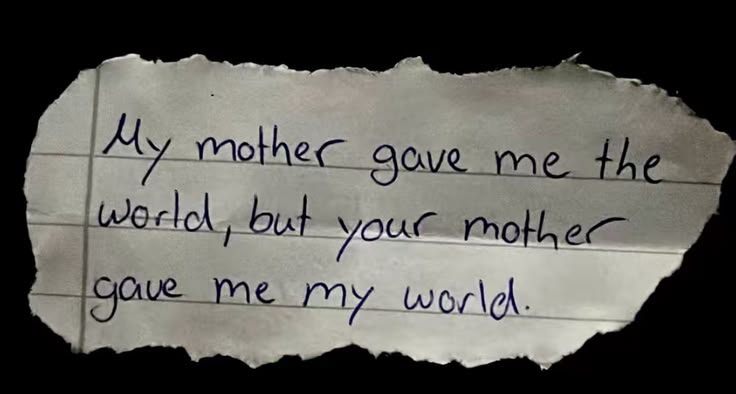 My mother gave me the
world, but your mother
gave me my world.